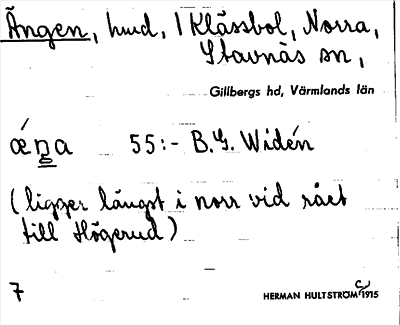 Ängen, hmd, 1 Klässbol, Norra,
Stavnäs sn,
Gillbergs hd, Värmlands län
ǽŋa 55:- B.G. Widén
(ligger längst i norr vid rået
till Högerud)
7
HERMAN HULTSTRÖM 1915